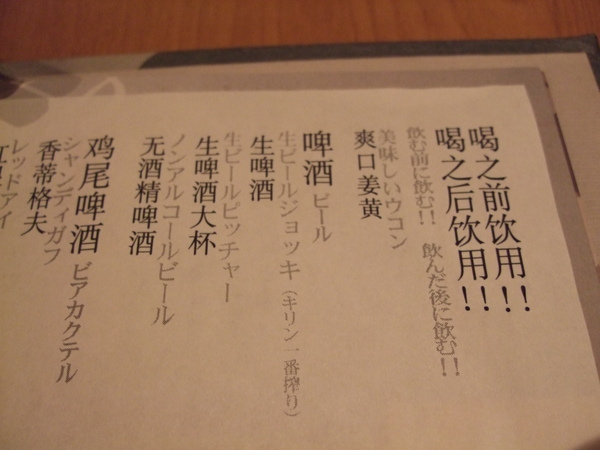 喝之前饮用!!
喝之后饮用!!
飲む前に飲む!! 飲んだ後に飲む!!
美味しいウコン
爽口姜黄
啤酒 ビール
生ビールジョッキ(キリン一番搾り)
生啤酒
生ビールピッチャー
生啤酒大杯
ノンアルコールビール
无酒精啤酒
鸡尾啤酒 ビアカクテル
シャンディガフ
香蒂格夫
レッドアイ